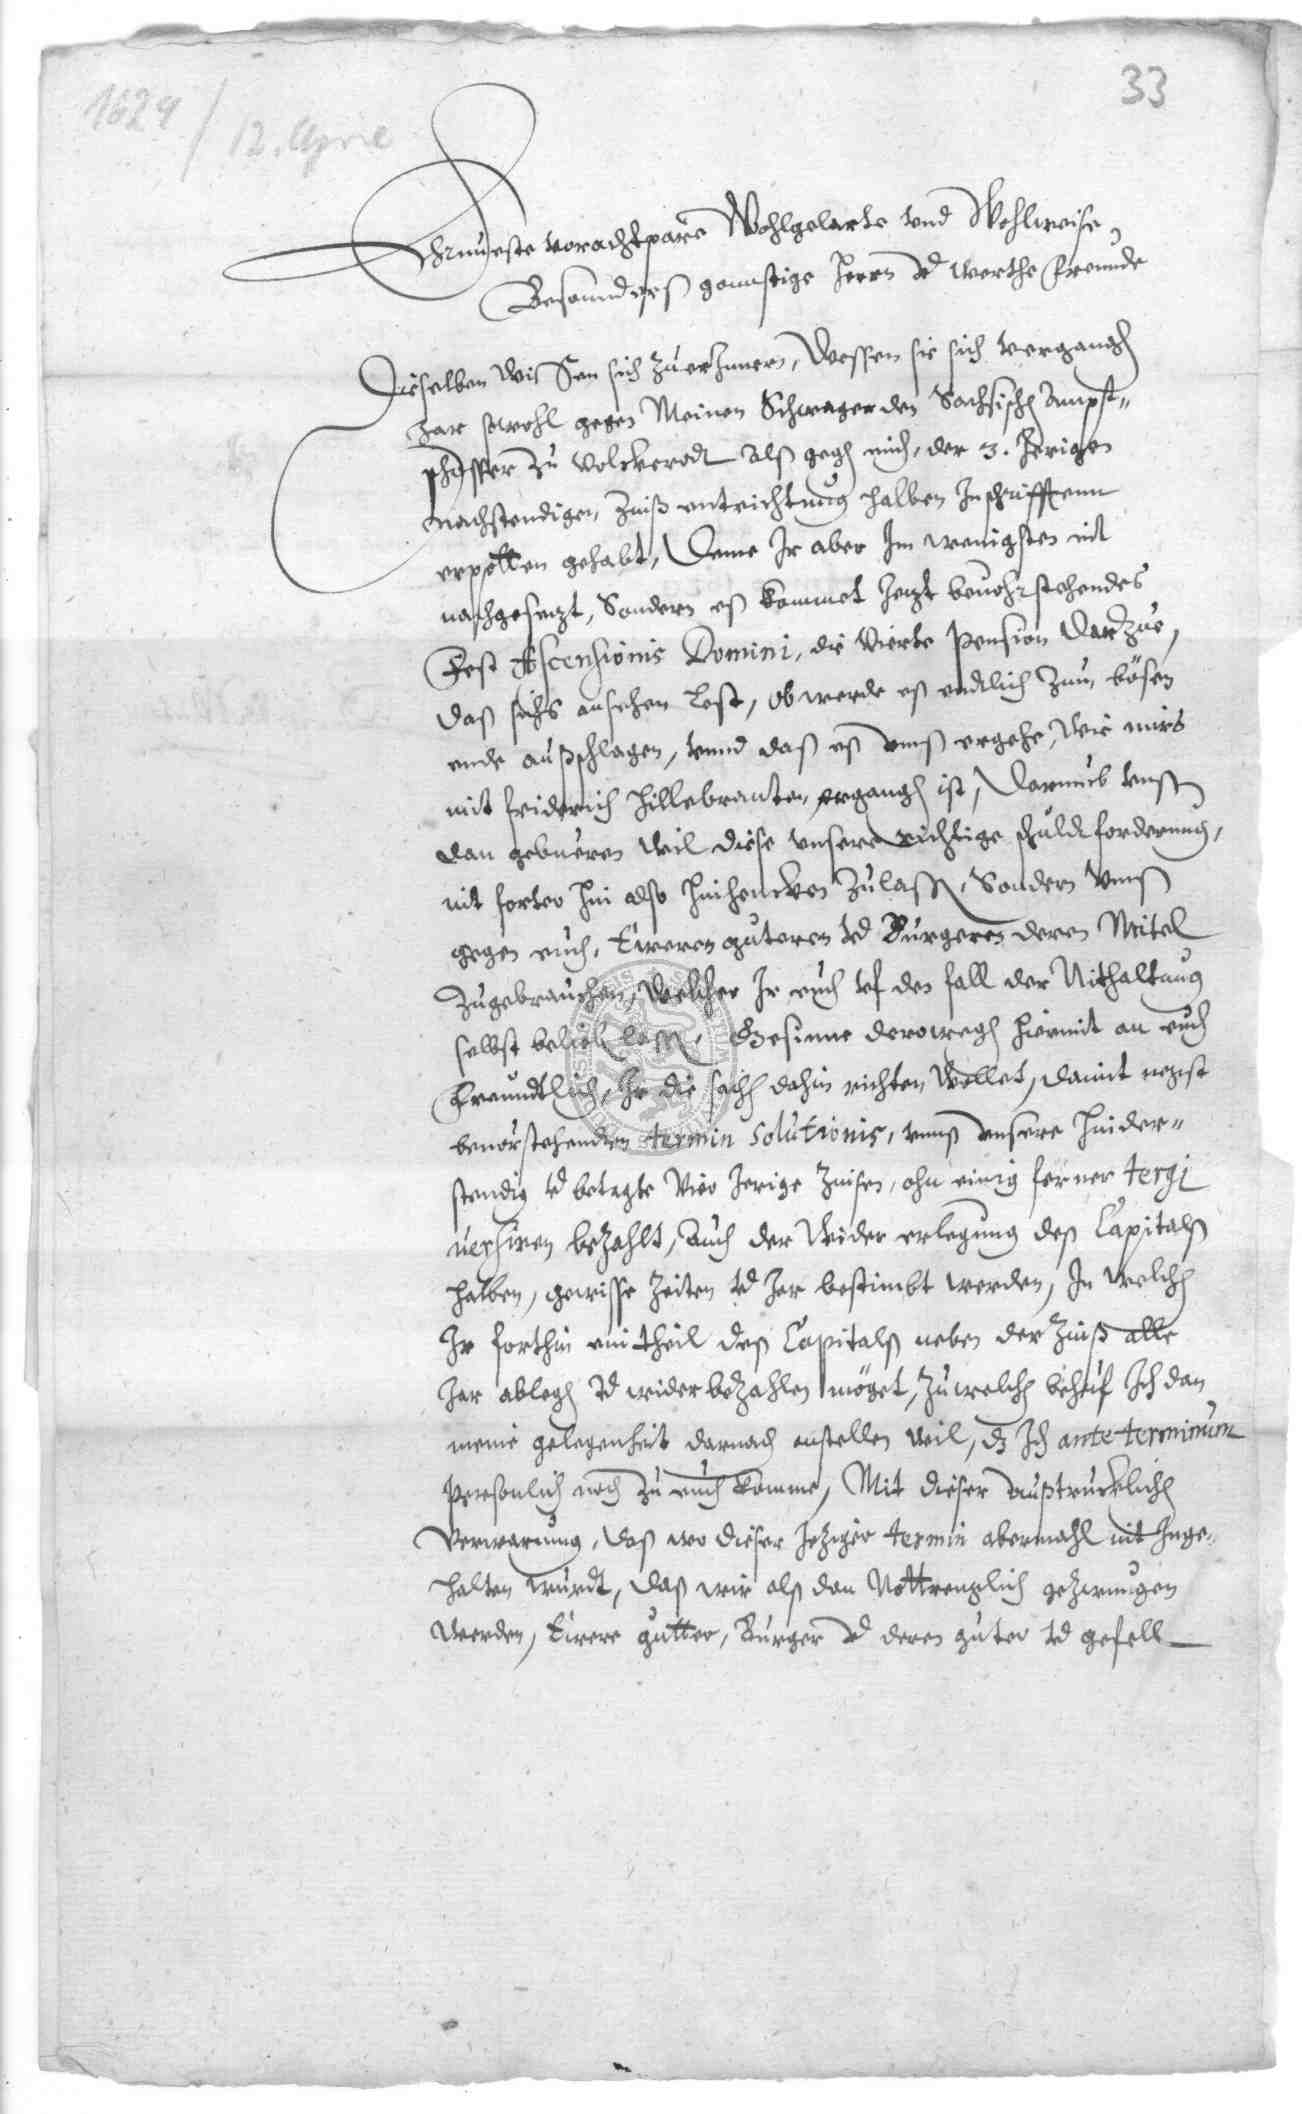 33
1624 / 12. April
Ehrnueste vorachtpare Wohlgelarte vnd Wohlweise
Besonnders gonnstige Herrn vnd werthe Freunde
Dieselben wissen sich zu erInnern, Wessen sie sich vergangen
Jar sowohl gegen Meinen Schwager den Sachsischen Ampst-
schösser zu Volckerodt alss gegen mich, der 3. Jerigen
nachstendigen Zinss entrichtung halben In schrifftenn
erpotten gehabt, Deme Ir aber Im wenigsten nit
nachgesetzt, Sondern ess kommet Jetzt beuohrstehendes
Fest Ascensionis Domini, die Vierte Pension Darzue,
Dass sichs ansehen lest, ob werde ess endtlich zum bösen
ende aussschlagen, vnnd dass ess vnss ergehe, wie mirs
mit Friderich Hillebranten ergangen ist, Darumb vnss
dan gebueren will diese vnsere richtige schuldt forderung,
nit forter hin also hinhencken zulassen, Sondern vnss
gegen euch, Eweren guteren vnd Burgeren deren Mitel
Zugebrauchen, Welcher Ir euch vf den fall der Nithaltung
selbst belieben lassen, Gesinne derowegen hiermit an euch
Freundtlich, Ir die sachen dahin richten Wollet, damit nechst
beuorstehenden termin solutionis, vnnss vnsere hinder-
stendig vnd betagte Vier Jerige Zinsen, ohn einig ferner tergi
uersiren bezahlt, Auch der Wider erlegung dess Capitalss
halben, gewisse Zeiten vnd Jar bestimbt werden, In welchen
Ir forthin ein theil dess Capitalss neben der Zinss alle
Jar ablegen vnd wider bezahlen möget, Zu welchem behuf Ich dan
meine gelegenheit darnach anstellen will, dz Ich ante terminum
Personlich noch zu euch komme, Mit dieser ausstrucklichen
Verwarnung, dass wo dieser Jetziger termin abermahl nit Inge-
halten wurdt, dass wir alss dan Nottrenglich gezwungen
Werden, Ewere gutter, Burger vnd deren guter vnd gefell